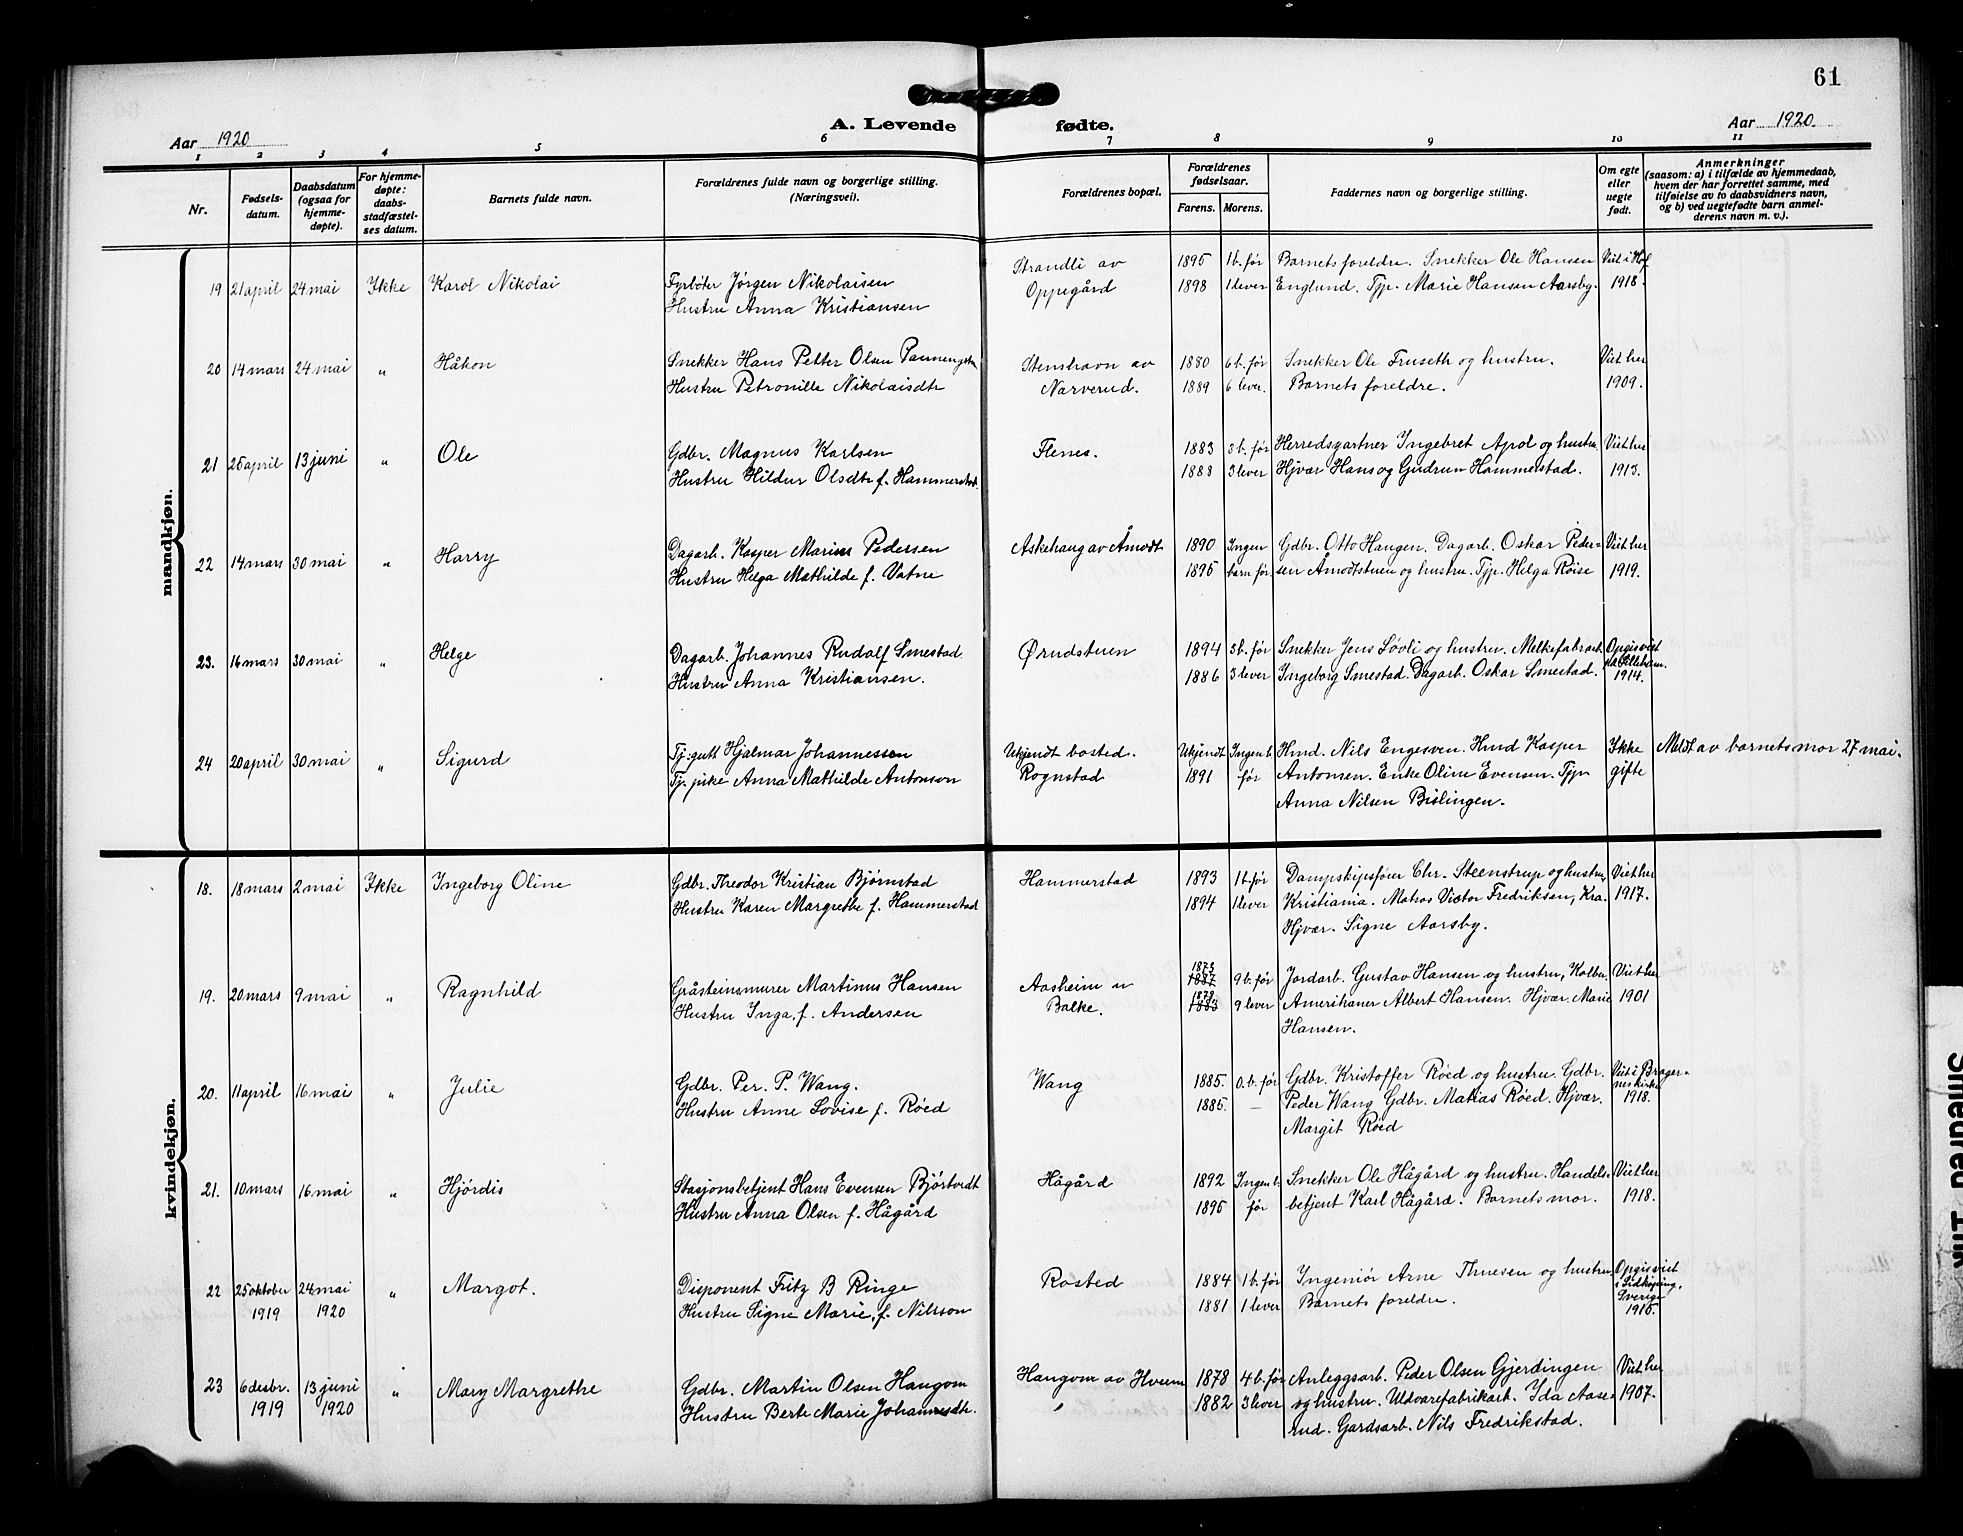 61
A. Levende fødte.
Aar 1920
Aar 1920.
1 2 3 4 5 6 7 8 9 10 11
Nr.
Fødsels-
datum.
Daabsdatum
(ogsaa for
hjemme-
døpte).
For hjemme-
døpte:
daabs-
stadfæstel-
ses datum.
Barnets fulde navn.
Forældrenes fulde navn og borgerlige stilling.
(Næringsvei).
Forældrenes bopæl.
Forældrenes
fødselsaar.
Farens. Morens.
Faddernes navn og borgerlige stilling.
Om egte
eller
uegte
født.
Anmerkninger
(saasom: a) i tilfælde av hjemmedaab,
hvem der har forrettet samme, med
tilføielse av to daabsvidners navn,
og b) ved uegtefødte barn anmel-
derens navn m. v.).
mandkjøn.
19 21 april 24 mai Ikke Karol Nikolai
Fyrbøter Jørgen Nikolaisen
Hustru Anna Kristiansen
Strandli av
Oppegård
1895 1 b. før
1898 1 lever
Barnets foreldre. Snekker Ole Hansen
Englund. Tjp. Marie Hansen Aarsby.
Viet i Hof
1918.
20 14 mars 24 mai „ Håkon
Snekker Hans Petter Olsen
Hustru Petronille Nikolaisdtr
Stenshavn av
Narverud.
1880 6 b. før
1889 6 lever.
Snekker Ole Fruseth og hustru.
Barnets foreldre.
Viet her
1909.
21 25 april 13 juni „ Ole
Gdbr. Magnus Karlsen
Hustru Hildur Olsdtr f. Hammerstad.
Flenes.
1883 3 b. før
1888 3 lever
Herredsgartner Ingebret Apol og hustru
Hjvær Hans og Gudrun Hammerstad.
Viet her
1913.
22 14 mars 30 mai „ Harry
Dagarb. Kasper Marius Pedersen
Hustru Helga Mathilde f. Vatne
Askehaug av Åmodt
1890 Ingen
1895 barn før.
Gdbr. Otto Haugen. Dagarb. Oskar Peder-
sen Åmodtstuen og hustru. Tjp. Helga Røise
Viet her
1919.
23. 16 mars 30 mai „ Helge
Dagarb. Johannes Rudolf Smestad
Hustru Anna Kristiansen.
Ørudstuen
1894 3 b. før
1886 3 lever
Snekker Jens Løvli og hustru. Melkefabrarb.
Ingeborg Smestad. Dagarb. Oskar Smestad.
Opgis viet
1914.
24 20 april 30 mai „ Sigurd
Tj. gutt Hjalmar Johannessen
Tj. pike Anna Mathilde Antonson
Ukjendt bosted.
Rognstad
Ukjendt Ingen b.
1891 før
Hmd. Nils Engesven. Hmd Kasper
Antonsen. Enke Oline Evensen. Tjp
Anna Nilsen Bislingen.
Ikke
gifte
Meldt av barnets mor 27 mai.
kvindekjøn.
18. 18 mars 2 mai Ikke Ingeborg Oline
Gdbr. Theodor Kristian Bjørnstad
Hustru Karen Margrethe f. Hammerstad
Hammerstad
1893 1 b. før
1894 1 lever
Dampskipsfører Chr. Steenstrup og hustru,
Kristiania. Matros Victor Fredriksen, Kra.
Hjvær. Signe Aarsby.
Viet her
1917.
19. 20 mars 9 mai „ Ragnhild
Gråsteinsmurer Martinus Hansen
Hustru Inga, f. Andersen
Aasheim u
Balke.
1873
1887 9 b. før
1878
1883 9 lever
Jordarb. Gustav Hansen og hustru, Kolbu
Amerikaner Albert Hansen. Hjvær. Marie
Hansen.
Viet her
1901
20. 11 april 16 mai „ Julie
Gdbr. Per. P. Wang.
Hustru Anne Lovise f. Røed
Wang
1885. 0. b. før
1885. —
Gdbr. Kristoffer Røed og hustru. Gdbr.
Peder Wang Gdbr. Matias Røed. Hjvær.
Margit Røed
Viet i Brager-
nes kirke
1918.
21. 10 mars 16 mai „ Hjórdis
Stasjonsbetjent Hans Evensen Bjørtvedt
Hustru Anna Olsen f. Hågård
Hågård
1892 Ingen b.
1895 før
Snekker Ole Hågård og hustru. Handels-
betjent Karl Hågård. Barnets mor.
Viet her
1918.
22 25 oktober 24 mai „ Margot.
1919 1920
Disponent Fritz B Ringe
Hustru Signe Marie, f. Nilsson
Rosted
1884 1 b. før
1881 1 lever
Ingeniør Arne Thuesen og hustru
Barnets foreldre.
Opgis viet
i Lidköping,
Sverige
1915.
23 6 desbr. 13 juni „ Mary Margrethe
1919 1920
Gdbr. Martin Olsen Haugom
Hustru Berte Marie Johannesdtr.
Haugom av Hveem
1878 4 b. før
1882 3 lever
Anleggsarb. Peder Olsen Gjerdingen
og hustru. Uldvarefabrikarb. Ida Aase-
rud. Gardsarb. Nils Fredrikstad.
Viet her
1907.